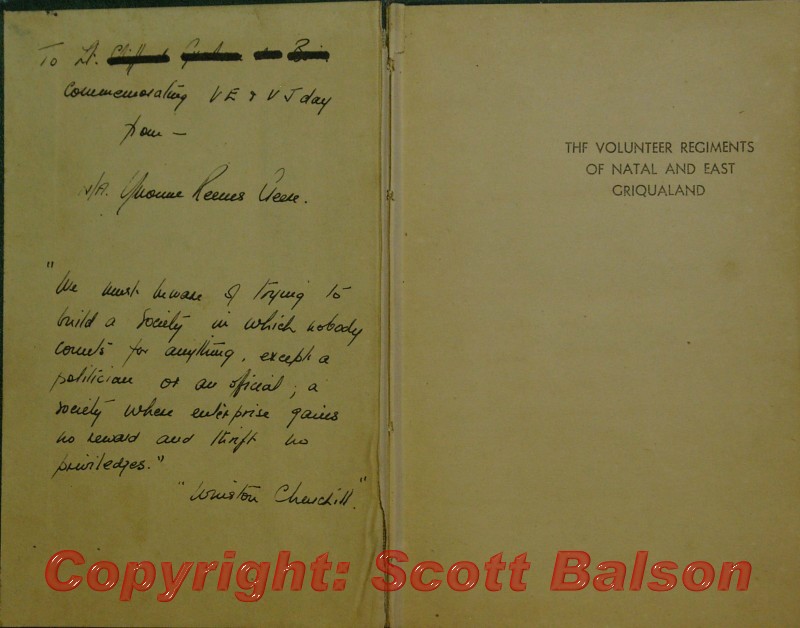 To Lt.
Commemorating VE & VJ day
from –
Yvonne Reeves
"We must beware of trying to
build a Society in which nobody
counts for anything, except a
politician or an official; a
society where enterprise gains
no reward and thrift no
priviledges."
"Winston Churchill."
THE VOLUNTEER REGIMENTS
OF NATAL AND EAST
GRIQUALAND
Copyright: Scott Balson